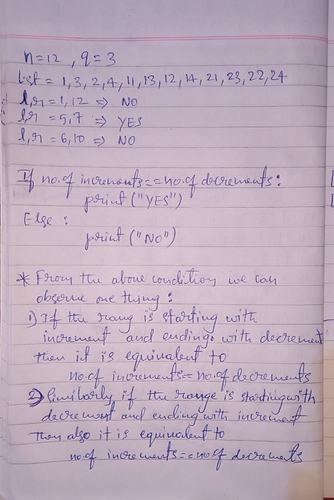 n=12 , q=3
lst = 1, 3, 2, 4, 11, 13, 12, 14, 21, 23, 22, 24
l,r = 1, 12 => NO
l,r = 5, 7 => YES
l,r = 6, 10 => NO
If no. of increments == no. of decrements :
print ("YES")
Else :
print ("NO")
* From the above condition we can
observe one thing :
1) If the rang is starting with
increment and ending with decrement
then it is equivalent to
no. of increments = no. of decrements
2) Similarly, if the range is starting with
decrement and ending with increment
Then also it is equivalent to
no. of increments == no. of decrements